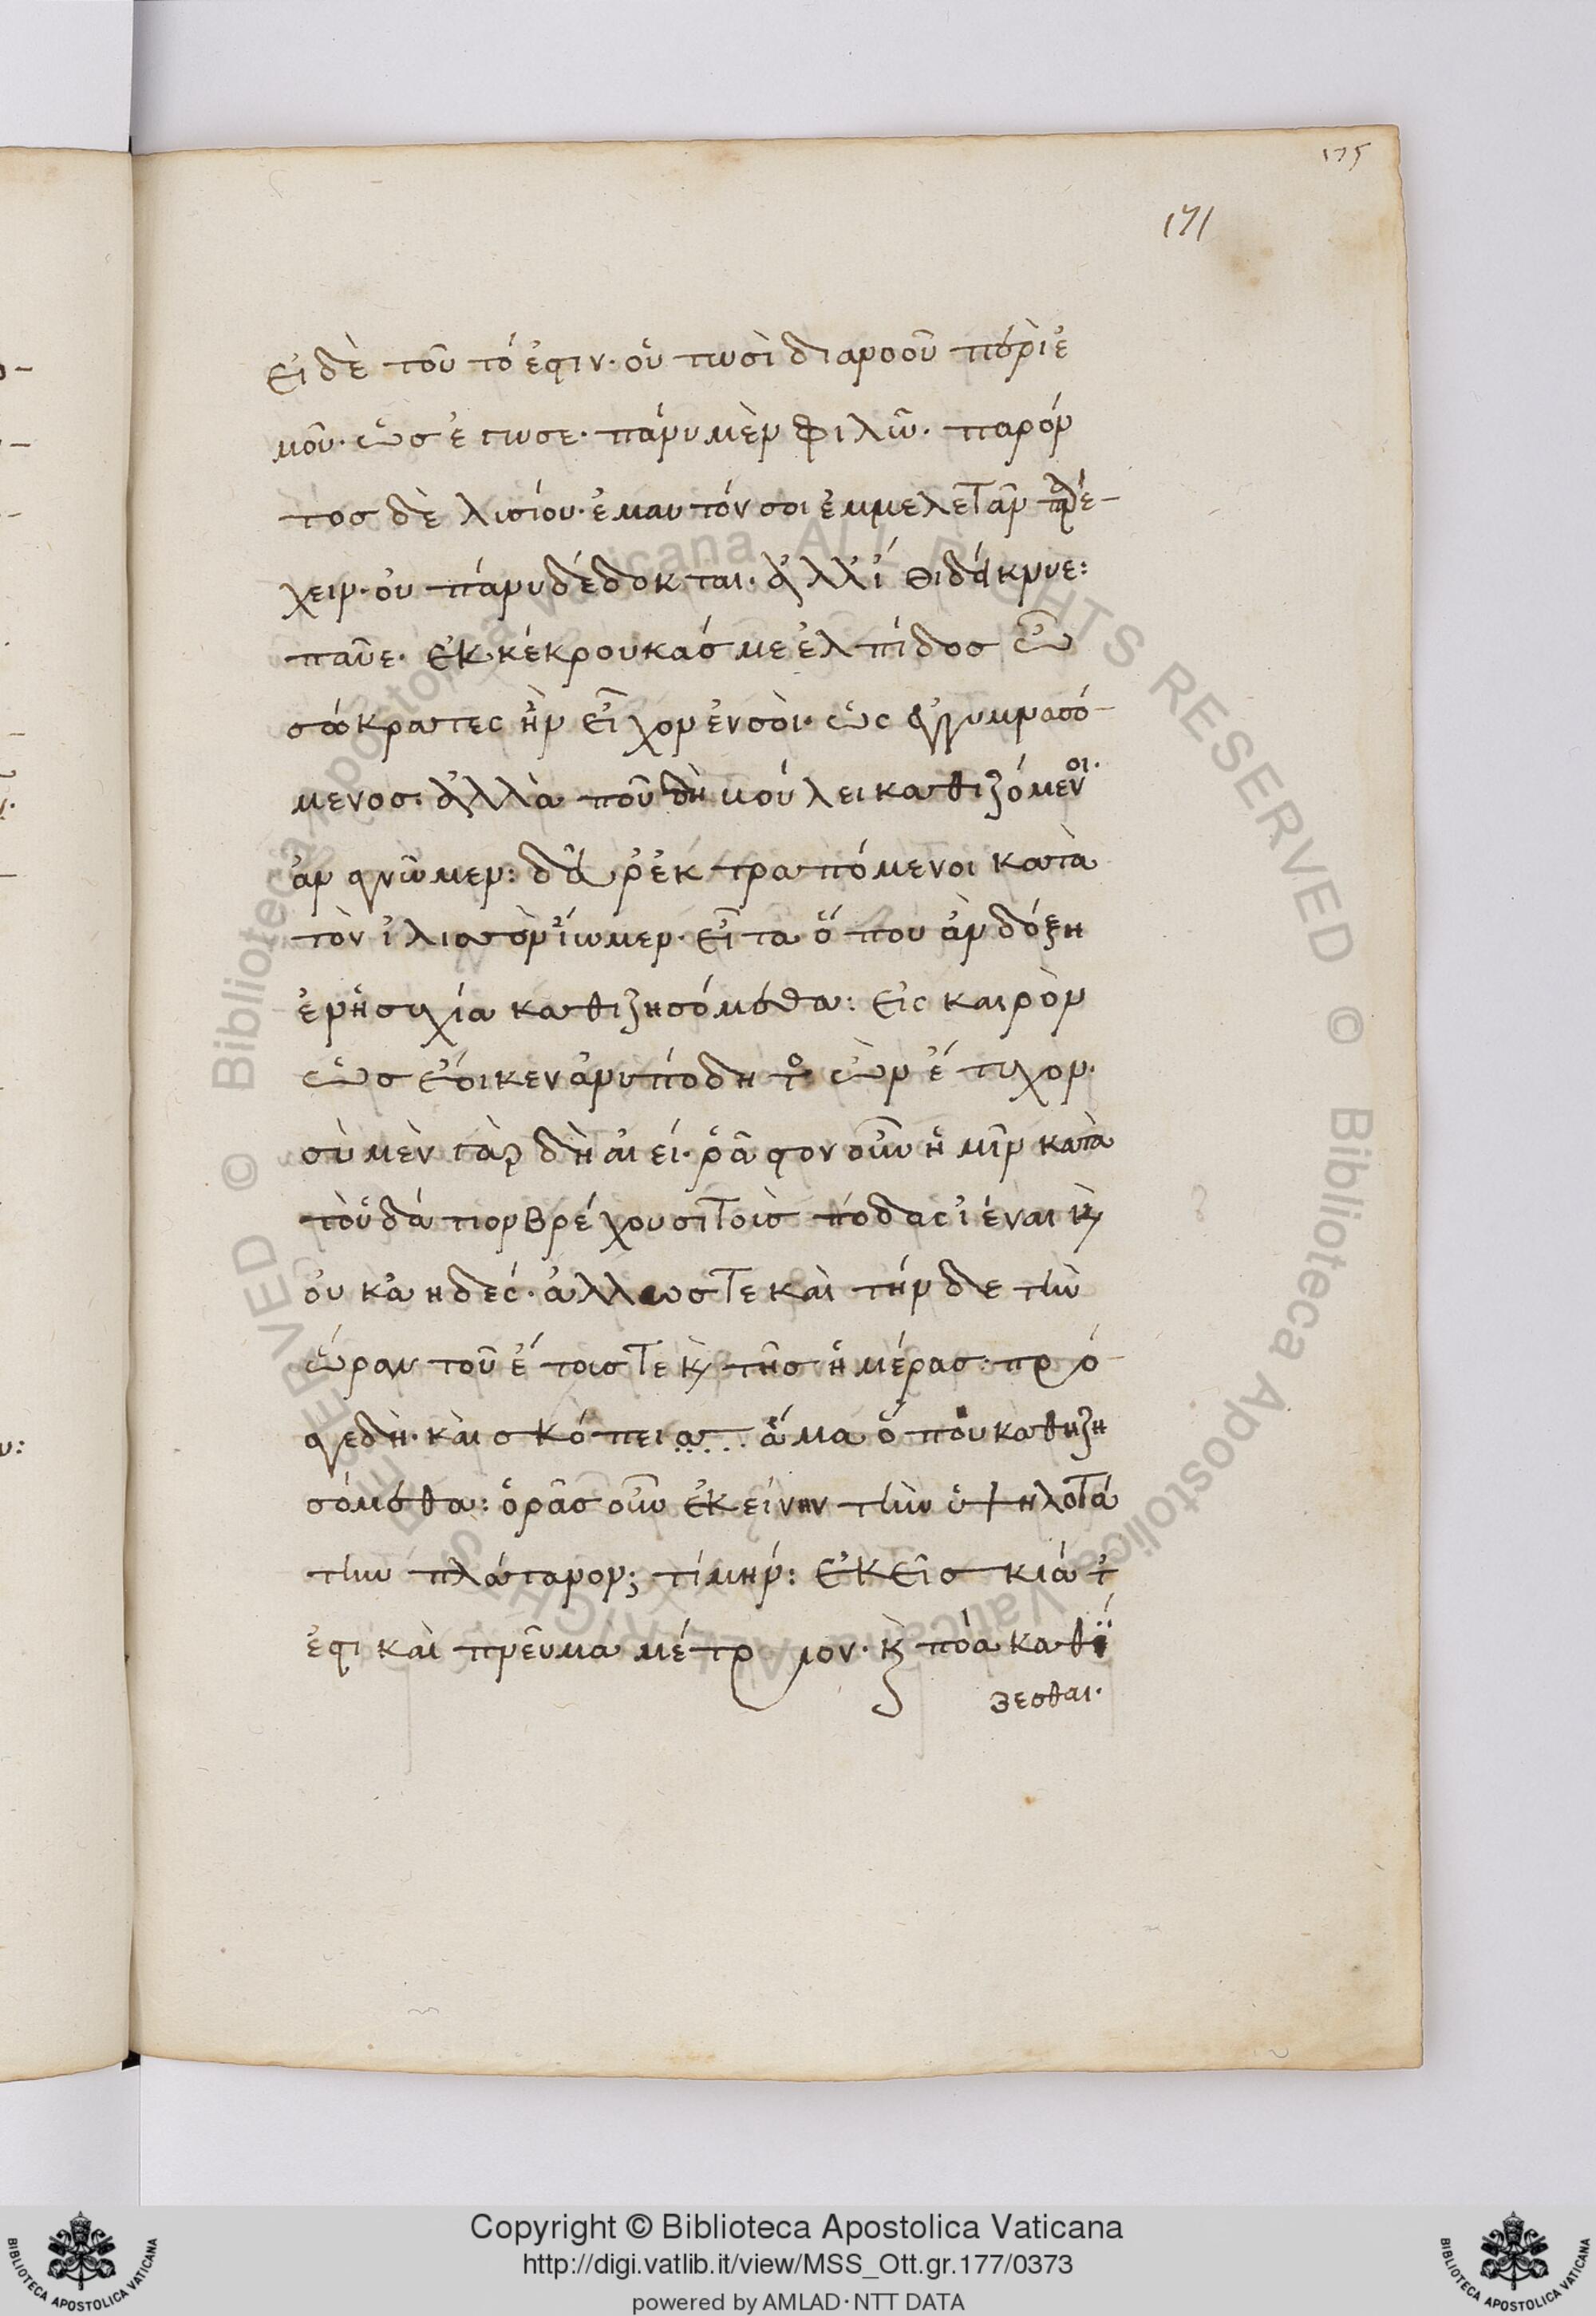 175
171
εἰ δὲ τοῦτό ἐστιν· οὑτωσὶ διανοοῦ περὶ ἐ
μοῦ· ὡς ἐγώ σε· πάνυ μὲν φιλῶ· παρόν
τος δὲ λυσίου· ἐμαυτόν σοι ἐμμελετᾶν παρέ-
χειν· οὐ πάνυ δέδοκται· ἀλλ' ἴθι δείκνυε:
παῦε· ἐκκέκρουκάσ με ἐλπίδος ὦ
σώκρατες ἣν εἶχον ἐν σοὶ· ὡς ἐγγυμνασό-
μενοσ· ἀλλὰ ποῦ δὴ βούλει καθιζόμενοι·
ἀναγνῶμεν: δεῦρ' ἐκτραπόμενοι κατὰ
τὸν ἰλισσὸν ἴωμεν· εἶτα ὅπου ἂν δόξη
ἐν ἡσυχία καθιζησόμεθα: εἰς καιρὸν
ὡς ἔοικεν ἀνυπόδητος ὢν ἔτυχον·
σὺ μὲν γὰρ δὴ ἀεί· ῥᾷστον οὖν ἡμῖν κατὰ
τὸ ὑδάτιον βρέχουσι τοὺς πόδας ἰέναι κὶ
οὐκ ἀηδές· ἄλλως τε καὶ τήνδε τὴν
ὥραν τοῦ ἔτους τε κὶ τῆς ἡμέρας· πρό
αγε δὴ· καὶ σκόπει α.... ἅμα ὅπου καθηζη
σόμεθα: ὁρᾶς οὖν ἐκείνην τὴν ὑψηλοτά
την πλάτανον; τί μήν: ἐκεῖ σκιά τ'
ἐστι καὶ πνεῦμα μέτριον· κὶ πόα καθί
ζεσθαι·
© Biblioteca Apostolica Vaticana ALL RIGHTS RESERVED © Biblioteca Apostolica Vaticana ALL RIGHTS RESERVED
Copyright © Biblioteca Apostolica Vaticana
http://digi.vatlib.it/view/MSS_Ott.gr.177/0373
powered by AMLAD·NTT DATA
BIBLIOTECA APOSTOLICA VATICANA
BIBLIOTECA APOSTOLICA VATICANA